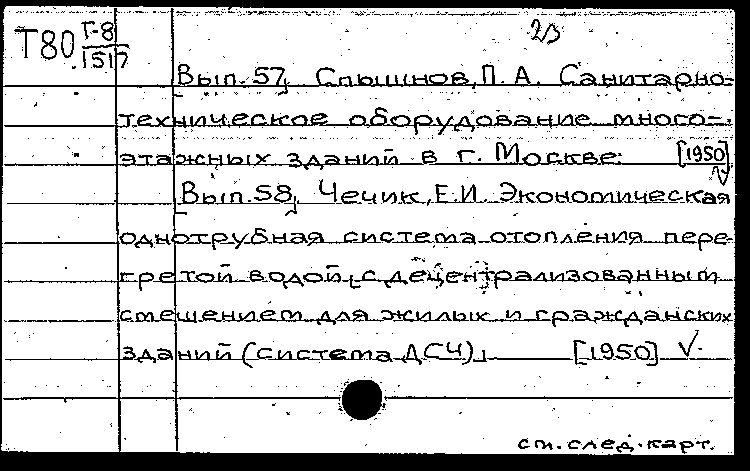 Т80 Г-8
1517
23
Вып. 57, Слышнов, П. А. Санитарно-
техническое оборудование много-
этажных зданий в г. Москве. [1950]
V
Вып. 58, Чечик, Е.И. Экономическая
однотрубная система отопления пере-
гретой водой, с децентрализованным
смешением для жилых и гражданских
зданий (система ДСЧ), [1950] V.
см. след. карт.